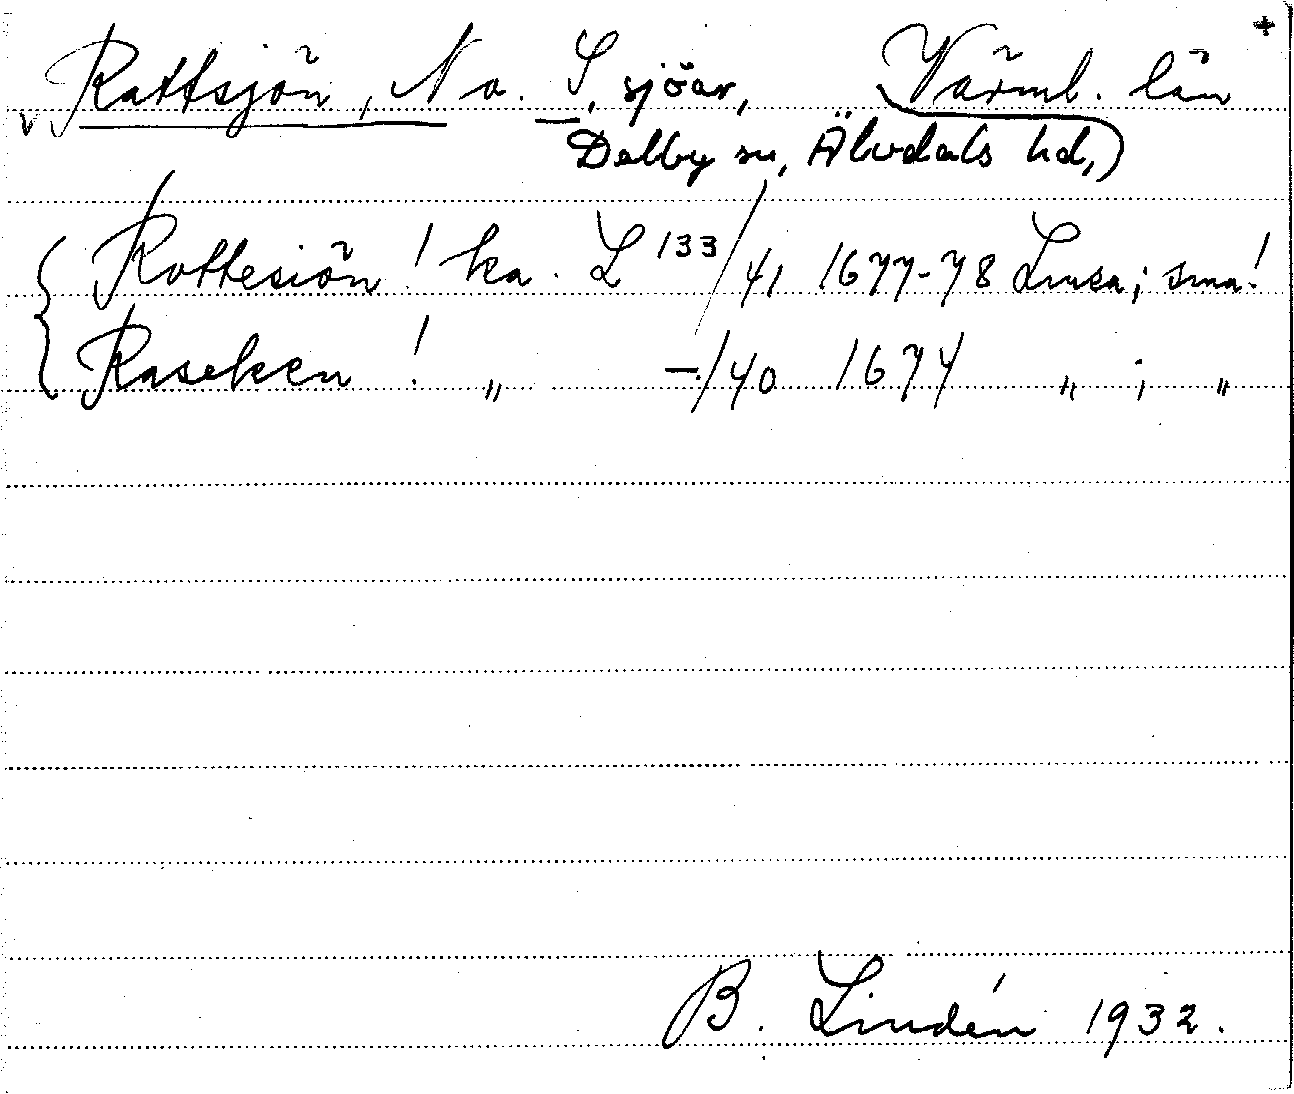 +
v Rattsjön, N o. S, sjöar, Värml. län
Dalby sn, Älvdals hd,)
Rottesiön! ka. L 133/41 1677-78 Lmsa; sma!
Raseken! „ -/40 1674 „ ; „
B. Lindén 1932.